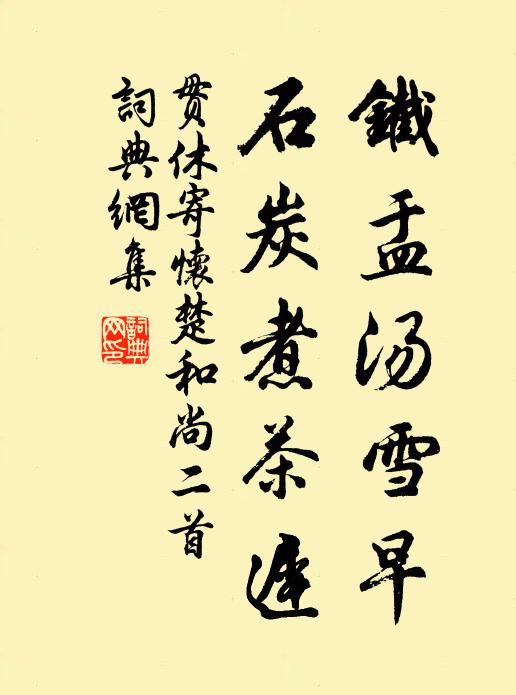 鐵盂汤雪早
石炭煮茶遲
贯休寄懷楚和尚二首
詞典網集
詞典网印